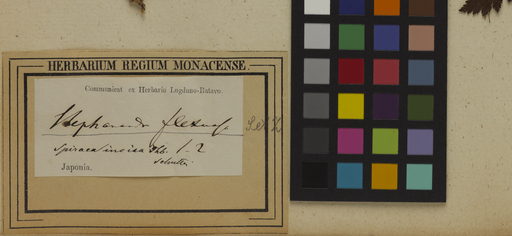 HERBARIUM REGIUM MONACENSE
Communicat ex Herbario Lugduno-Batavo.
Stephanandra flexuosa S. et Z.
Spiraea incisa Thb. 1-2
Japonia.